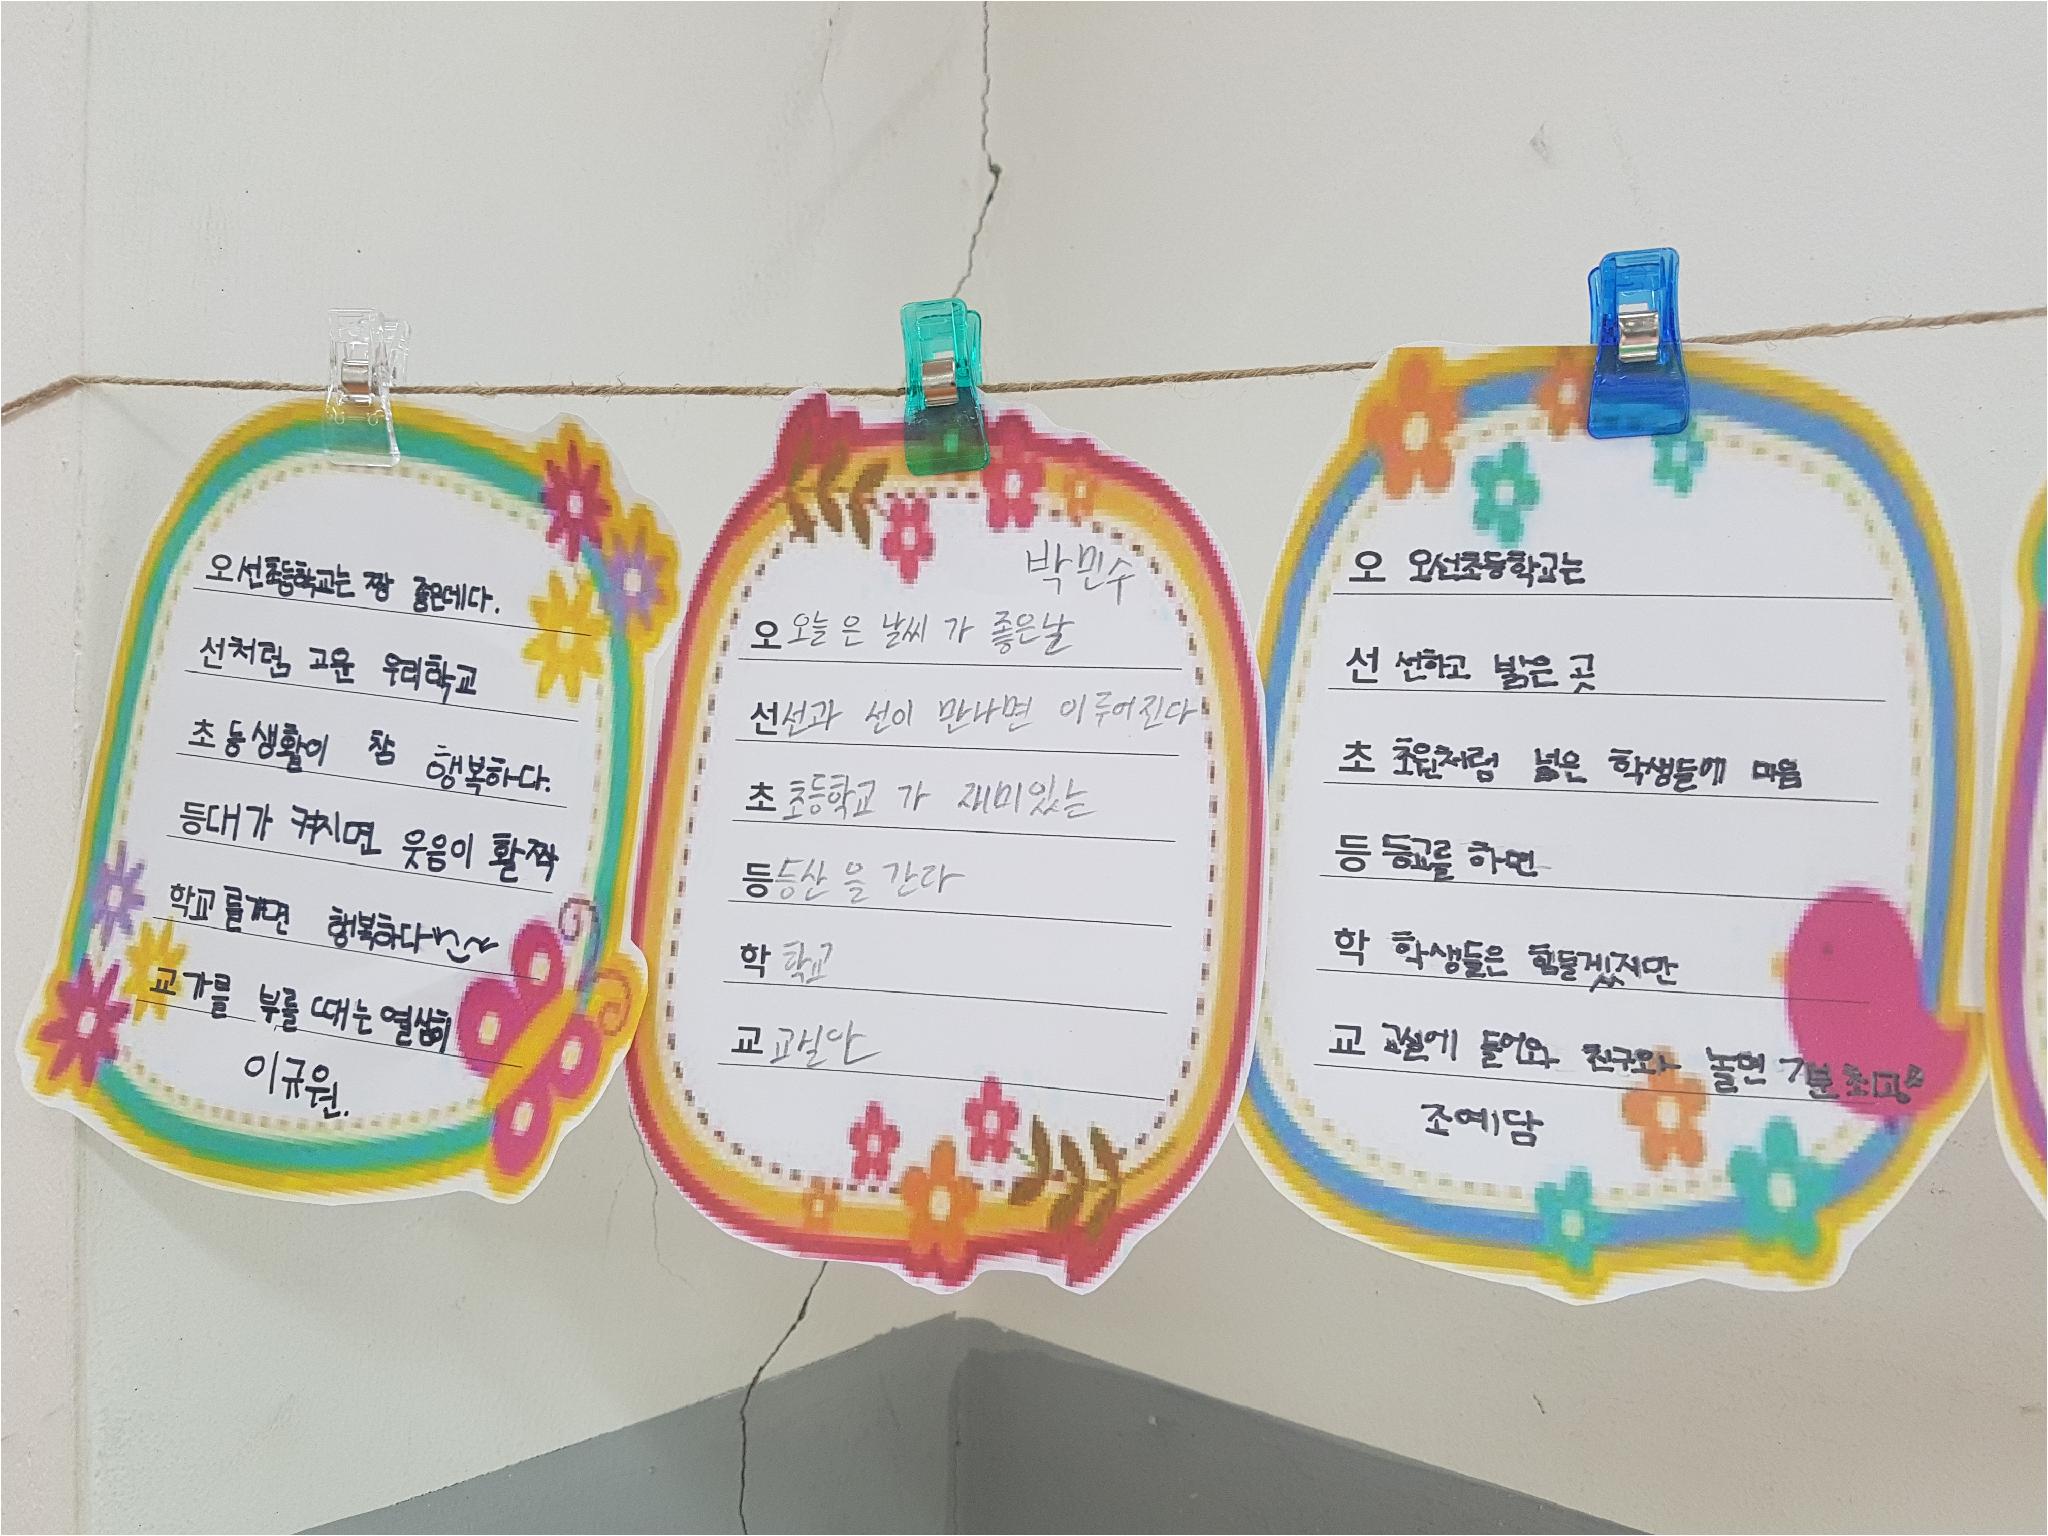 오선초등학교는 짱 좋은데다.
선처럼 고운 우리학교
초등생활이 참 행복하다.
등대가 켜지면 웃음이 활짝
학교를가면 행복하다
교가를 부를 때는 열심히
이규원.
박민수
오 오늘은 날씨가 좋은날
선 선과 선이 만나면 이루어진다
초 초등학교가 재미있는
등 등산을 간다
학 학교
교 교실아
오 오선초등학교는
선 선하고 밝은 곳
초 초원처럼 넓은 학생들에 마음
등 등교를 하면
학 학생들은 힘들겠지만
교 교실에 들어와 친구와 놀면 기분 최고
조예담